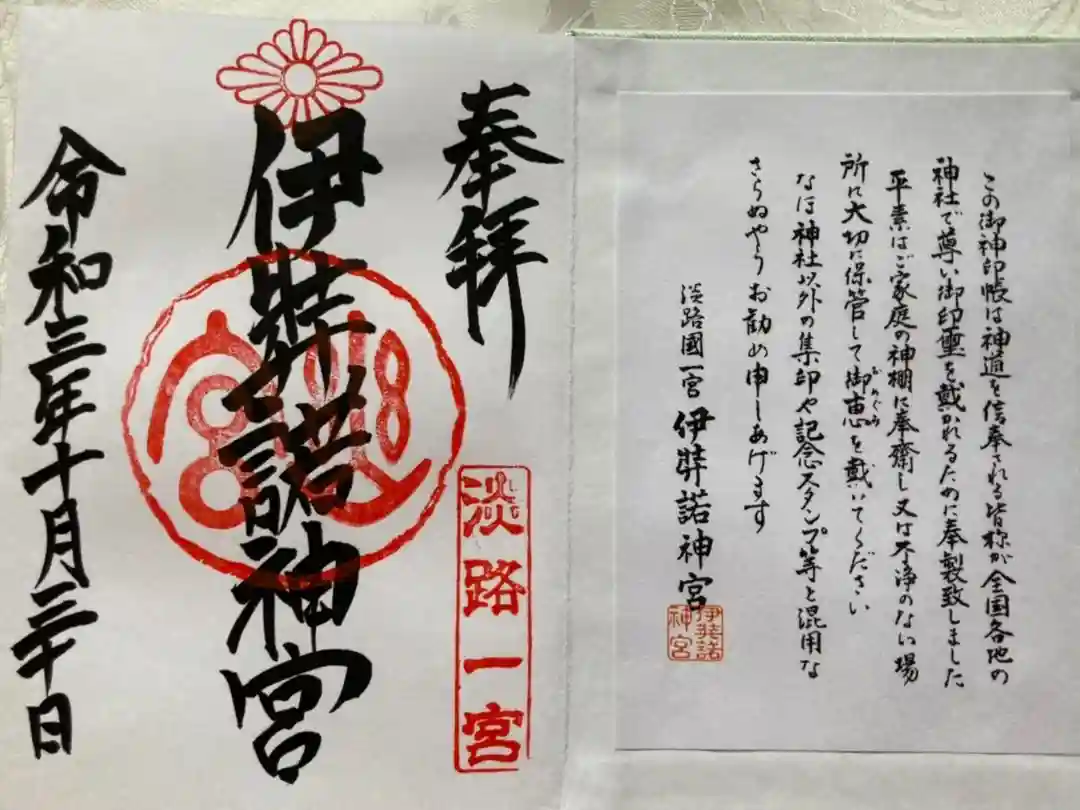 この御神印帳は神道を信奉される皆称が全国各地の
神社で尊い御印璽を戴かれるために奉製致しました
平素はご家庭の神棚に奉齋し又は不浄のない場
所に大切に保管して御恵を戴いてください
みめぐみ
なほ神社以外の集印や記念スタンプ等と混用な
さらぬやうお勧め申しあげます
淡路國一宮 伊弉諾神宮
伊弉諾
神宮
奉拝
淡路一宮
伊弉諾神宮
令和三年十月三十日